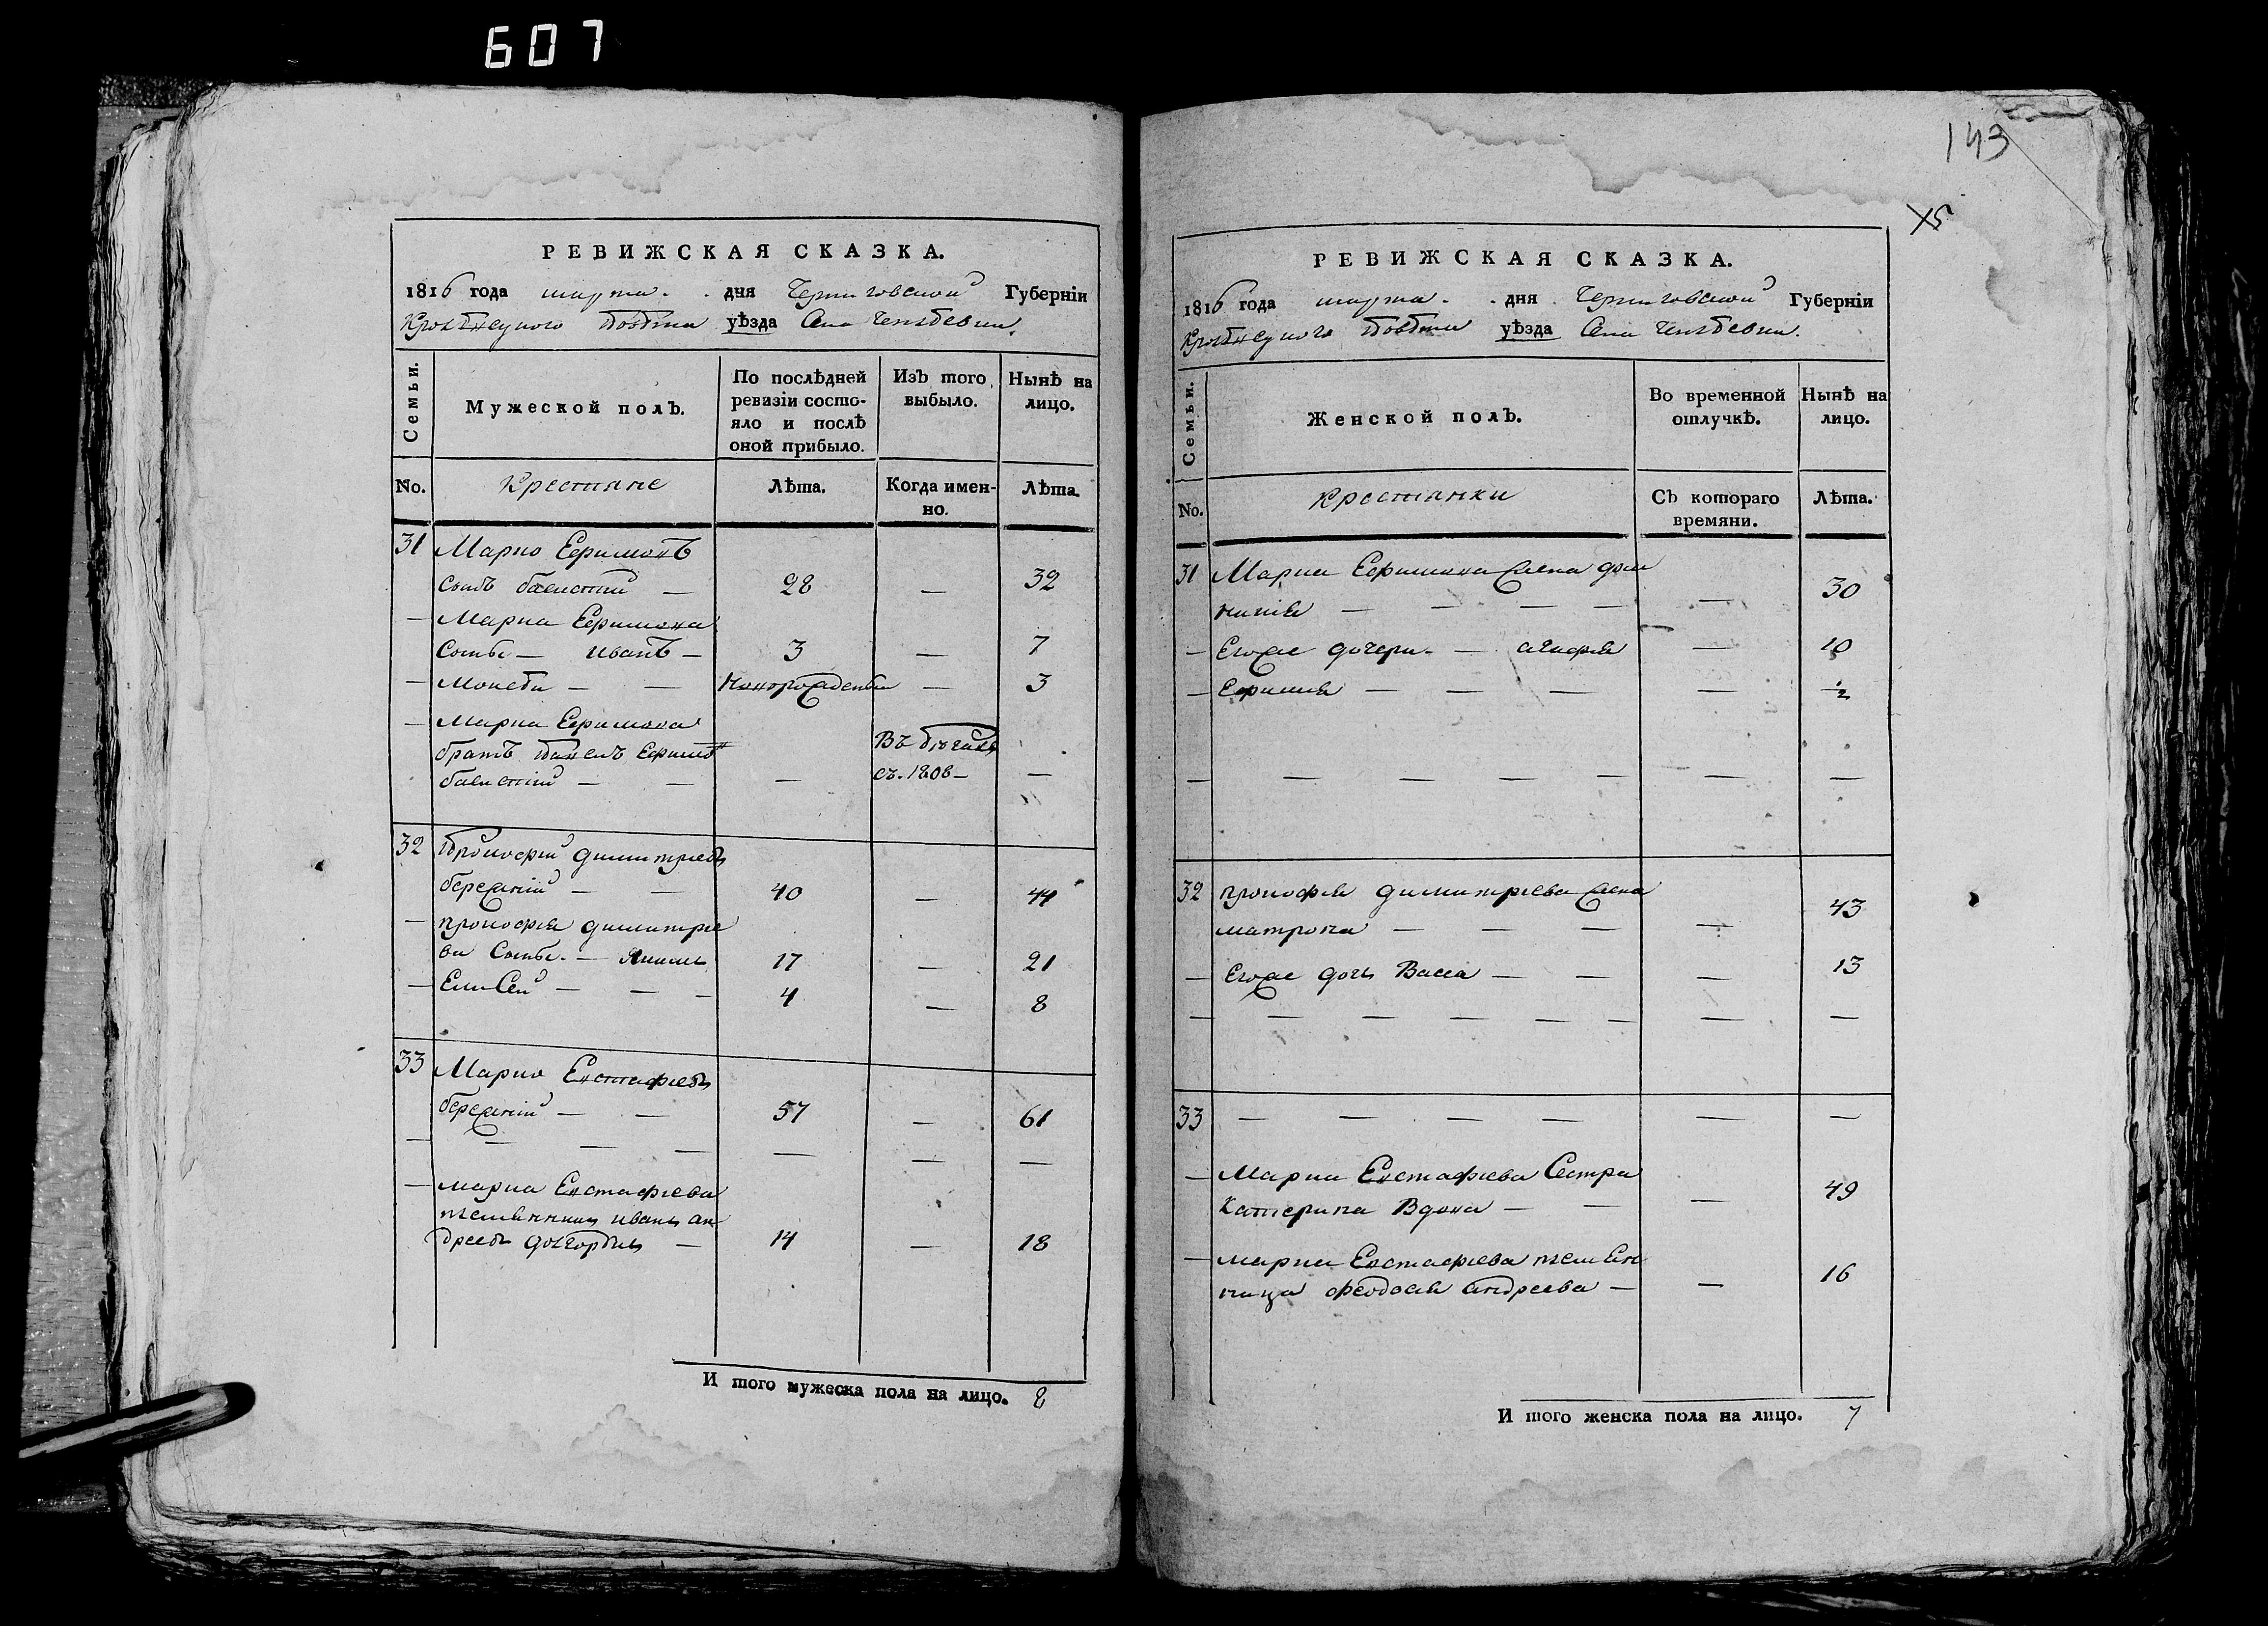 607
РЕВИЖСКАЯ СКАЗКА.
1816 года марта. дня Черниговской Губерніи
повѣта уѣзда Села
Семьи.
Мужеской полъ.
По послѣдней ревизіи состо-
яло и послѣ
оной прибыло.
Изъ того выбыло.
Нынѣ на лицо.
No. Крестяне Лѣта. Когда имен-
но. Лѣта.
31 Марко Ефимовъ
сынъ 28 — 32
— Марка Ефимова
Сынъ — иванъ — 3 — 7
— Моисеи — — новорожденъ — 3
— Марка Ефимова
братъ павелъ Ефимов
— — — Въ бѣгахъ съ 1808 — —
32 Прокофий димитриевъ
бережній — — 40 — 44
— прокофия димитрие
ва Сынъ — 17 — 21
— Елисей — — — 4 — 8
33 Марко Евстафиевъ
бережній — — 57 — 61
— — — — — — —
— марка Евстафиева
племянникъ иванъ ан
дреевъ 14 — 18
И того мужеска пола на лицо. 8
143
РЕВИЖСКАЯ СКАЗКА.
1816 года марта. дня Черниговской Губерніи
повѣта уѣзда Села
Семьи.
Женской полъ.
Во временной отлучкѣ.
Нынѣ на лицо.
No. Крестянки Съ котораго
времяни. Лѣта.
31 Марка Ефимова жена дом
никия — — — — — 30
— Егоже дочери — агафия — 10
— Ефимия — — — — ½
— — — — — — —
32 прокофия димитриева жена
матрона — — — — 43
— Егоже дочь Васса — — — 13
— — — — — — — —
33 — — — — — —
— Марка Евстафиева Сестра
Катерина Вдова — — — 49
— марка Евстафиева племян
ница феодосия андреева — — 16
И того женска пола на лицо. 7